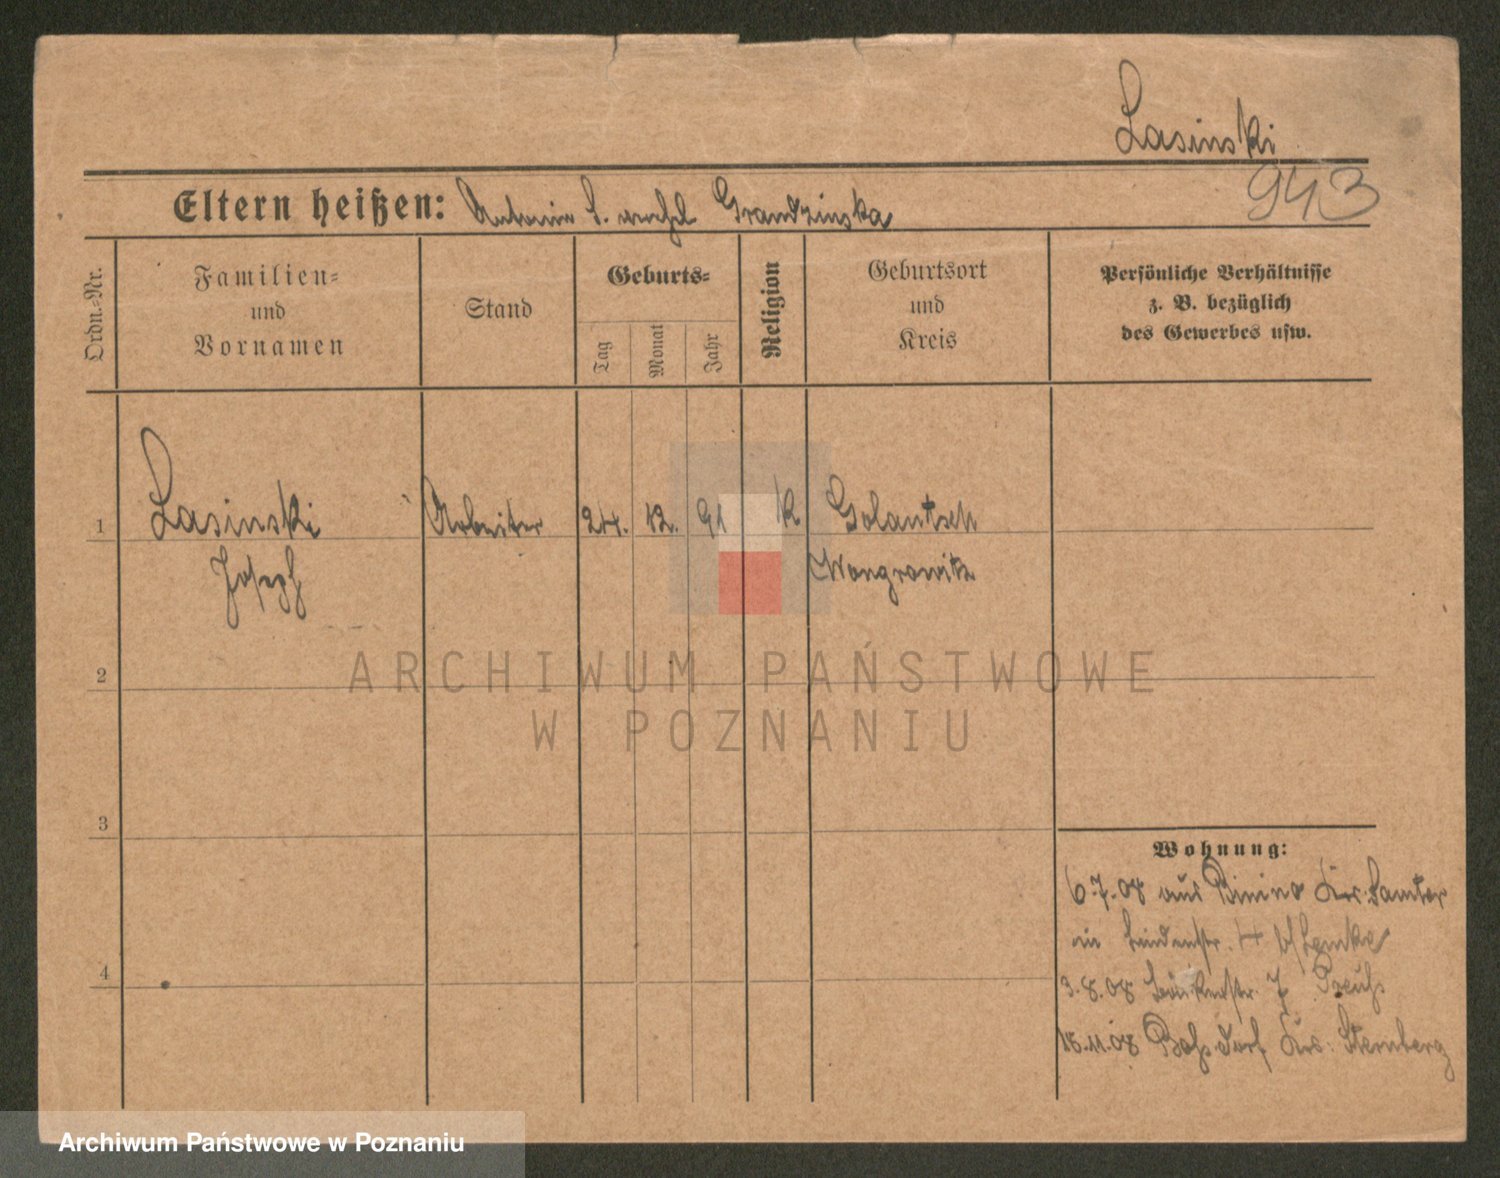 Lasinski
943
Eltern heißen: Antonin L. verehl Grandzinska
Ordn.=Nr.
Familien=
und
Vornamen
Stand
Geburts=
Tag
Monat
Jahr
Religion
Geburtsort
und
Kreis
Persönliche Verhältnisse
z. B. bezüglich
des Gewerbes usw.
1
Lasinski Arbeiter 24. 12. 91 k Golantsch
Joseph Wongrowitz
2
ARCHIWUM PAŃSTWOWE
W POZNANIU
3
Wohnung:
6.7.08 aus Binino Krs. Samter
in Lindenstr. 4 b/Lemke
4
3.8.08 7 Preuß
15.11.08 Krs. Sternberg
Archiwum Państwowe w Poznaniu